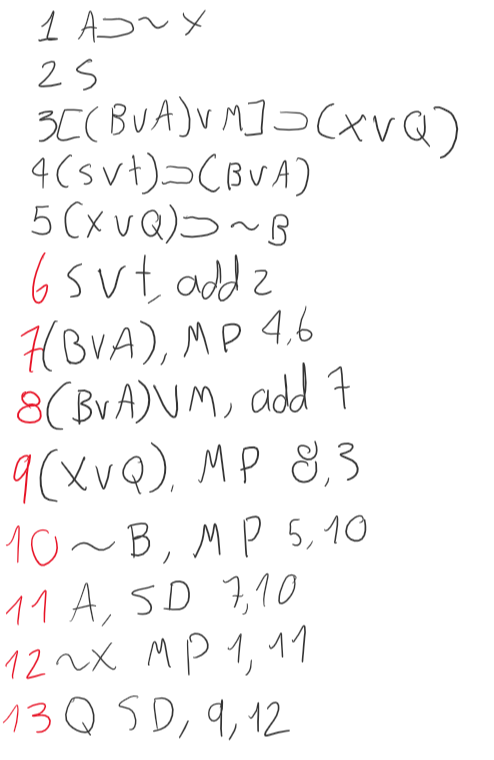 1 A⊃~X
2 S
3[(BvA)vM]⊃(XvQ)
4(svt)⊃(BvA)
5(XvQ)⊃~B
6 svt, add 2
7(BvA), MP 4,6
8(BvA)vM, add 7
9(XvQ), MP 8,3
10~B, MP 5,10
11 A, SD 7,10
12~X MP 1,11
13 Q SD, 9,12